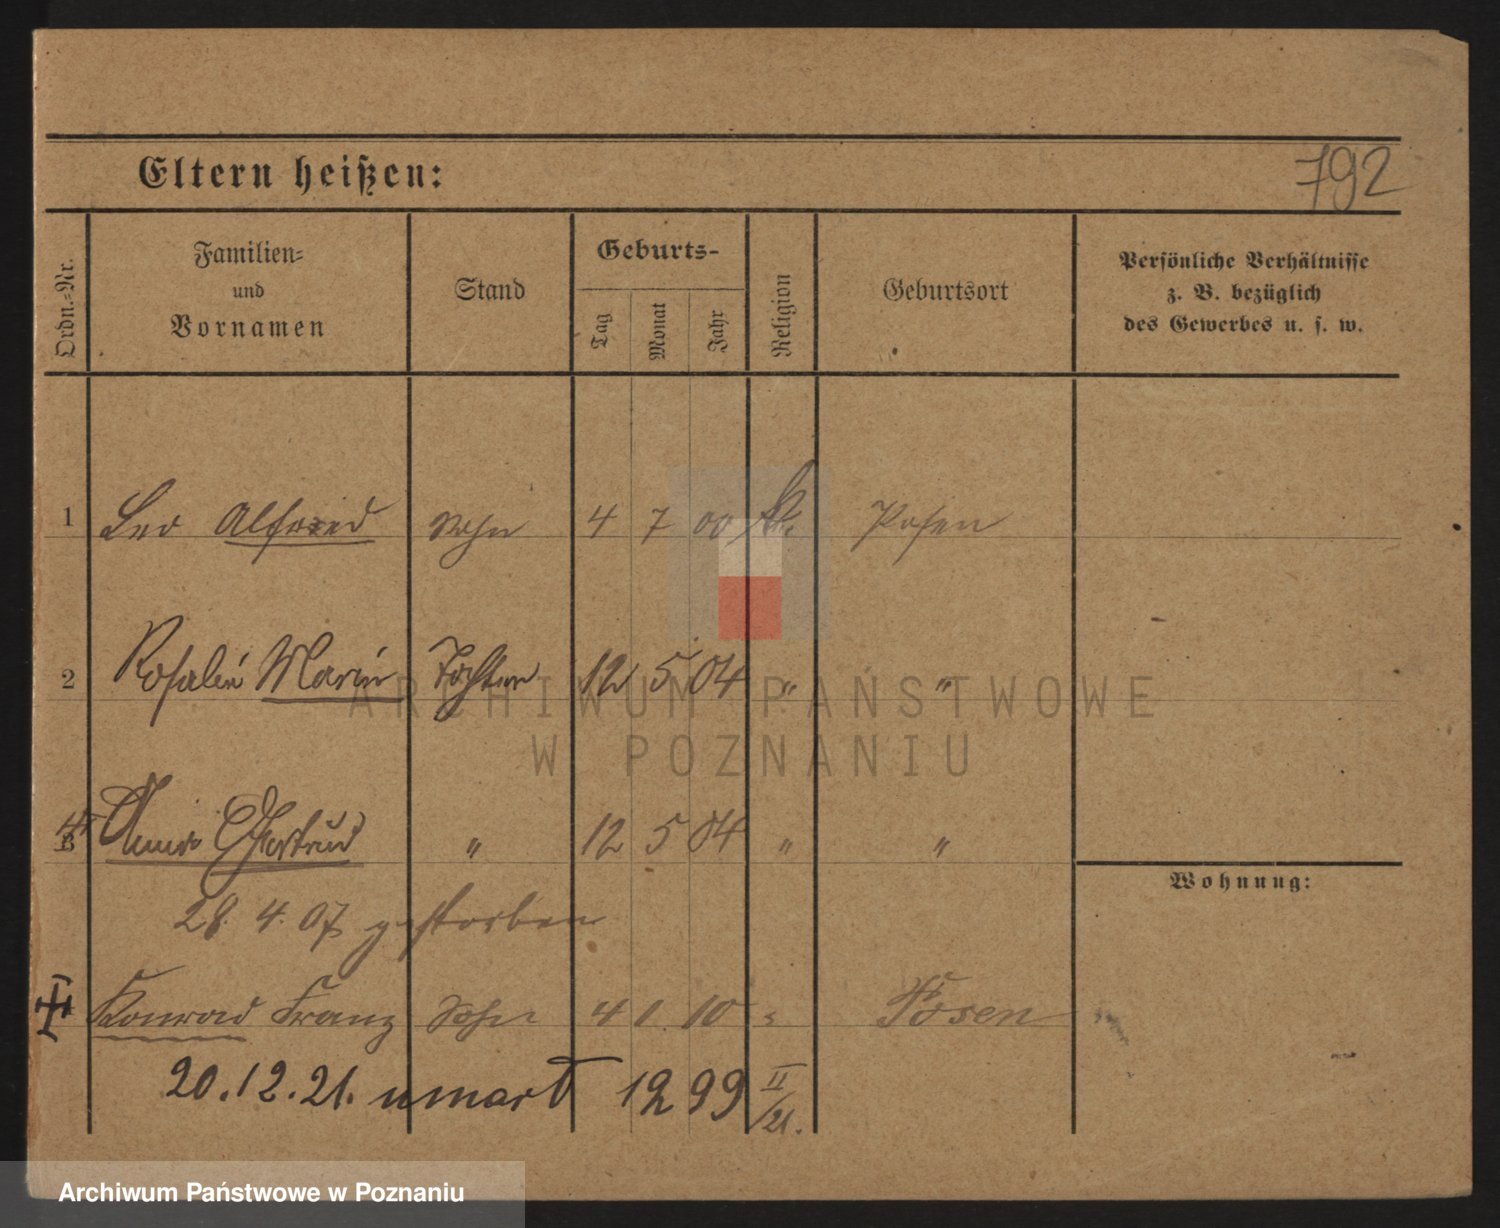 Eltern heißen:
792
Ordn.=Nr.
Familien=
und
Vornamen
Stand
Geburts-
Tag
Monat
Jahr
Religion
Geburtsort
Persönliche Verhältnisse
z. B. bezüglich
des Gewerbes u. s. w.
1 Leo Alfred Sohn 4 7 00 k. Posen
2 Rosalie Marie Tochter 12 5 04 " "
3 Gertrud " 12 5 04 " "
Wohnung:
28. 4. 07 gestorben
Konrad Franz Sohn 4 1. 10 " Posen
20.12.21. umarł 1299 II/21.
ARCHIWUM PAŃSTWOWE
W POZNANIU
Archiwum Państwowe w Poznaniu